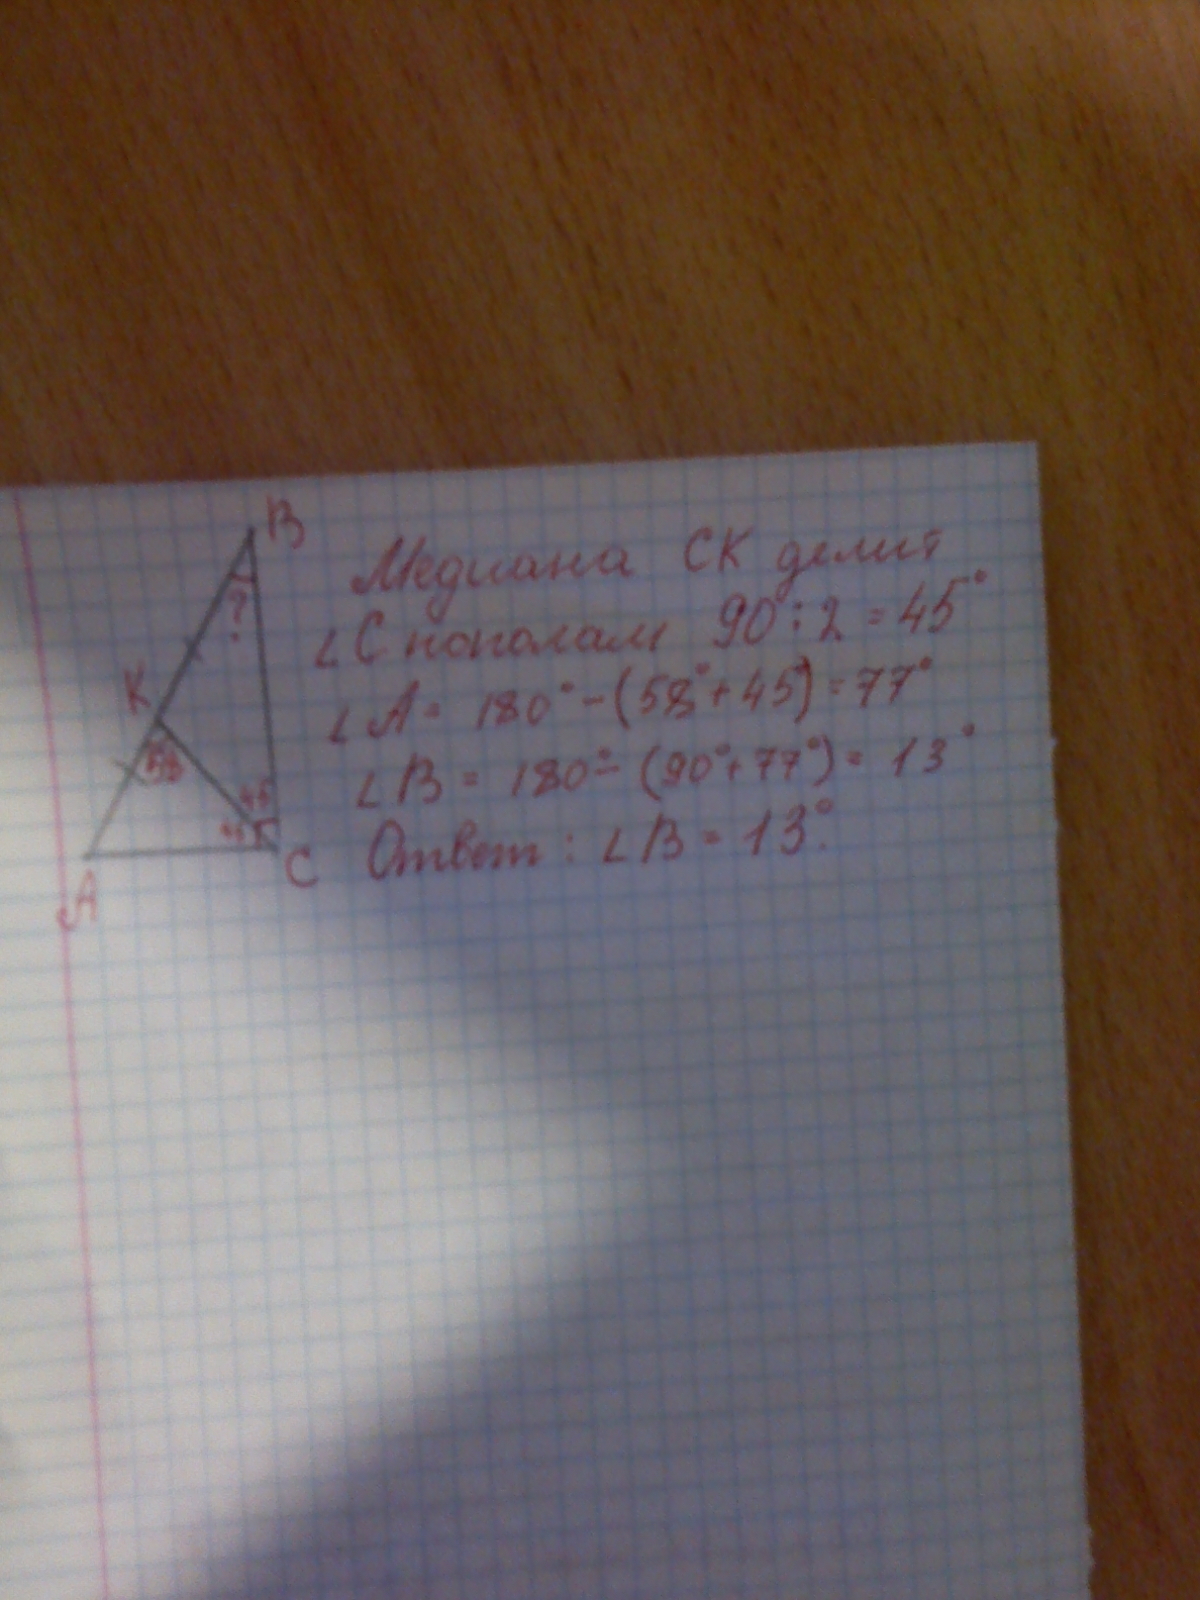 B
?
K
58
45
45
A
C
Медиана СК делит
∠С пополам 90:2=45°
∠A= 180°-(58°+45°)=77°
∠B = 180°-(90°+77°)= 13°
Ответ: ∠B = 13°.